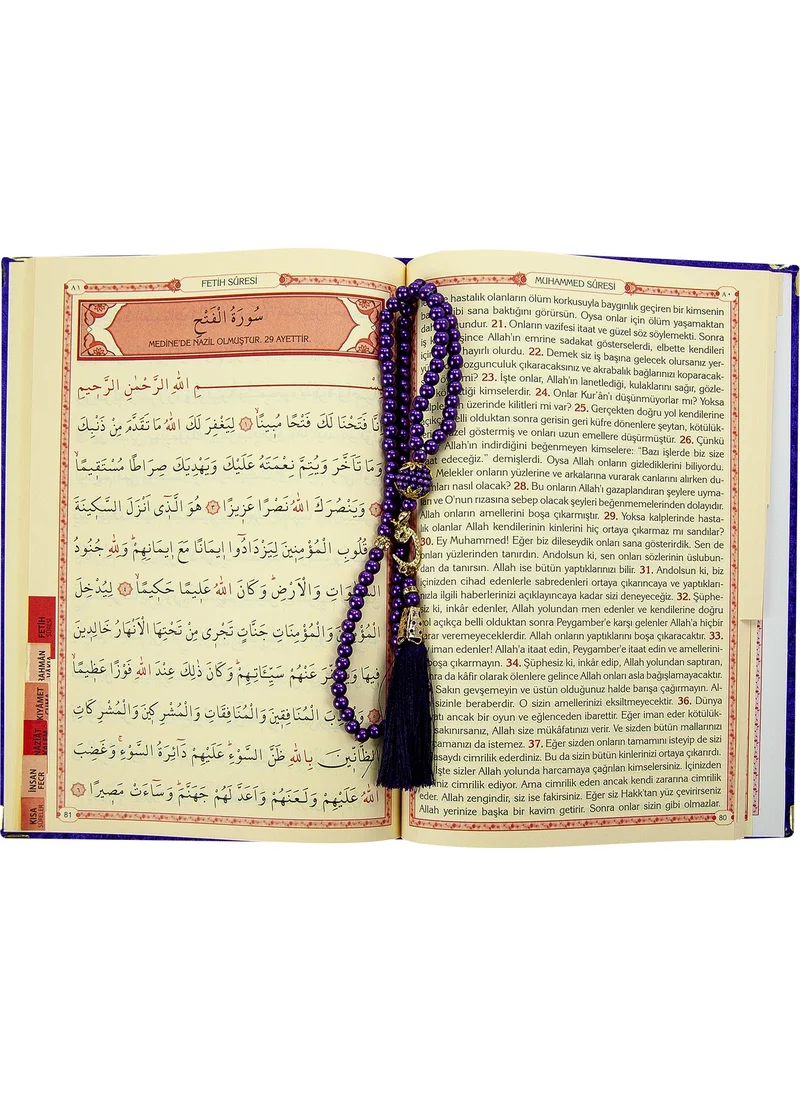 MUHAMMED SÛRESİ
٨٠
hastalık olanların ölüm korkusuyla baygınlık geçiren bir kimsenin
bi sana baktığını görürsün. Oysa onlar için ölüm yaşamaktan
dah undur. 21. Onların vazifesi itaat ve güzel söz söylemekti. Sonra
iş k şince Allah'ın emrine sadakat gösterselerdi, elbette kendileri
için hayırlı olurdu. 22. Demek siz iş başına gelecek olursanız yer-
ozgunculuk çıkaracaksınız ve akrabalık bağlarınızı koparacak-
mi? 23. İşte onlar, Allah'ın lanetlediği, kulaklarını sağır, gözle-
ettiği kimselerdir. 24. Onlar Kur'ân'ı düşünmüyorlar mı? Yoksa
kalpler üzerinde kilitleri mi var? 25. Gerçekten doğru yol kendilerine
açıkça belli olduktan sonra gerisin geri küfre dönenlere şeytan, kötülük-
zel göstermiş ve onları uzun emellere düşürmüştür. 26. Çünkü
Allah'ın indirdiğini beğenmeyen kimselere: "Bazı işlerde biz size
aat edeceğiz." dernişlerdi. Oysa Allah onların gizlediklerini biliyordu.
Melekler onların yüzlerine ve arkalarına vurarak canlarını alırken du-
mları nasıl olacak? 28. Bu onların Allah'ı gazaplandıran şeylere uyma-
arı ve O'nun rızasına sebep olacak şeyleri beğenmemelerinden dolayıdır.
Allah onların amellerini boşa çıkarmıştır. 29. Yoksa kalplerinde hasta-
lık olanlar Allah kendilerinin kinlerini hiç ortaya çıkarmaz mı sandılar?
30. Ey Muhammed! Eğer biz dileseydik onları sana gösterirdik. Sen de
onları yüzlerinden tanırdın. Andolsun ki, sen onları sözlerinin üslubun-
dan da tanırsın. Allah ise bütün yaptıklarınızı bilir. 31. Andolsun ki, biz
içinizden cihad edenlerle sabredenleri ortaya çıkarıncaya ve yaptıkları-
nızla ilgili haberlerinizi açıklayıncaya kadar sizi deneyeceğiz. 32. Şüphe-
siz ki, inkâr edenler, Allah yolundan men edenler ve kendilerine doğru
yol açıkça belli olduktan sonra Peygamber'e karşı gelenler Allah'a hiçbir
zarar veremeyeceklerdir. Allah onların yaptıklarını boşa çıkaracaktır. 33.
iman edenler! Allah'a itaat edin, Peygamber'e itaat edin ve amellerini-
boşa çıkarmayın. 34. Şüphesiz ki, inkâr edip, Allah yolundan saptıran,
ra da kâfir olarak ölenlere gelince Allah onları asla bağışlamayacaktır.
Sakın gevşemeyin ve üstün olduğunuz halde barışa çağırmayın. Al-
sizinle beraberdir. O sizin amellerinizi eksiltmeyecektir. 36. Dünya
atı ancak bir oyun ve eğlenceden ibarettir. Eğer iman eder kötülük-
sakınırsanız, Allah size mükâfatınızı verir. Ve sizden bütün mallarınızı
camanızı da istemez. 37. Eğer sizden onların tamamını isteyip de sizi
asaydı cimrilik ederdiniz. Bu da sizin bütün kinlerinizi ortaya çıkarırdı.
İşte sizler Allah yolunda harcamaya çağrılan kimselersiniz. İçinizden
iniz cimrilik ediyor. Ama cimrilik eden ancak kendi zararına cimrilik
eder. Allah zengindir, siz ise fakirsiniz. Eğer siz Hakk'tan yüz çevirirseniz
Allah yerinize başka bir kavim getirir. Sonra onlar sizin gibi olmazlar.
80
FETİH SÛRESİ
٨١
سُورَةُ الْفَتْحِ
MEDİNE'DE NAZİL OLMUŞTUR. 29 AYETTİR.
بِسْــــمِ اللهِ الرَّحْمٰنِ الرَّحِيمِ
اِنَّا فَتَحْنَا لَكَ فَتْحًا مُبِينًاۙ ﴿١﴾ لِيَغْفِرَ لَكَ اللهُ مَا تَقَدَّمَ مِنْ ذَنْبِكَ
وَمَا تَاَخَّرَ وَيُتِمَّ نِعْمَتَهُ عَلَيْكَ وَيَهْدِيَكَ صِرَاطًا مُسْتَقِيمًاۙ
﴿٢﴾ وَيَنْصُرَكَ اللهُ نَصْرًا عَزِيزًا ﴿٣﴾ هُوَ الَّذٖٓي اَنْزَلَ السَّكِينَةَ
قُلُوبِ الْمُؤْمِنِينَ لِيَزْدَادُٓوا اِيمَانًا مَعَ اِيمَانِهِمْۜ وَلِلّٰهِ جُنُودُ
السَّمٰوَاتِ وَالْاَرْضِۜ وَكَانَ اللهُ عَلِيمًا حَكِيمًاۙ ﴿٤﴾ لِيُدْخِلَ
الْمُؤْمِنِينَ وَالْمُؤْمِنَاتِ جَنَّاتٍ تَجْرِي مِنْ تَحْتِهَا الْاَنْهَارُ خَالِدِينَ
فِيهَا وَيُكَفِّرَ عَنْهُمْ سَيِّـَٔاتِهِمْۜ وَكَانَ ذٰلِكَ عِنْدَ اللهِ فَوْزًا عَظِيمًاۙ
﴿٥﴾ وَيُعَذِّبَ الْمُنَافِقِينَ وَالْمُنَافِقَاتِ وَالْمُشْرِكِينَ وَالْمُشْرِكَاتِ
الظَّٓانِّينَ بِاللهِ ظَنَّ السَّوْءِۜ عَلَيْهِمْ دَٓائِرَةُ السَّوْءِۚ وَغَضِبَ
اللهُ عَلَيْهِمْ وَلَعَنَهُمْ وَاَعَدَّ لَهُمْ جَهَنَّمَۜ وَسَٓاءَتْ مَصِيرًا ﴿٦﴾
81
FETİH
SÛRESİ
RAHMÂN
VÂKIA
KIYÂMET
CUMA
NÂZİÂT
İNSAN
FECR
KISA
SÛRELER